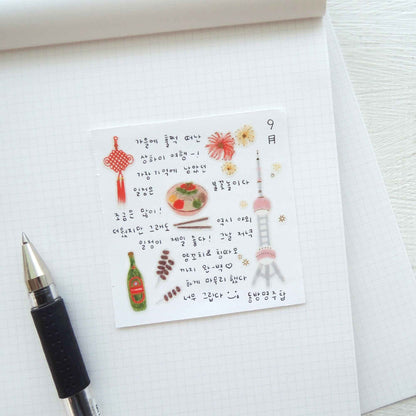 9月
가을에 훌쩍 떠난
상하이 여행 ~!
가장 기억에 남았던
일정은 불꽃놀이다
조금은 많이!
더웠지만 그래도 역시 야외
일정이 제일 좋다! 그날 저녁
양꼬치 & 칭따오
까지 완-벽♡
하게 마무리 했다
너무 그립다 동방명주탑